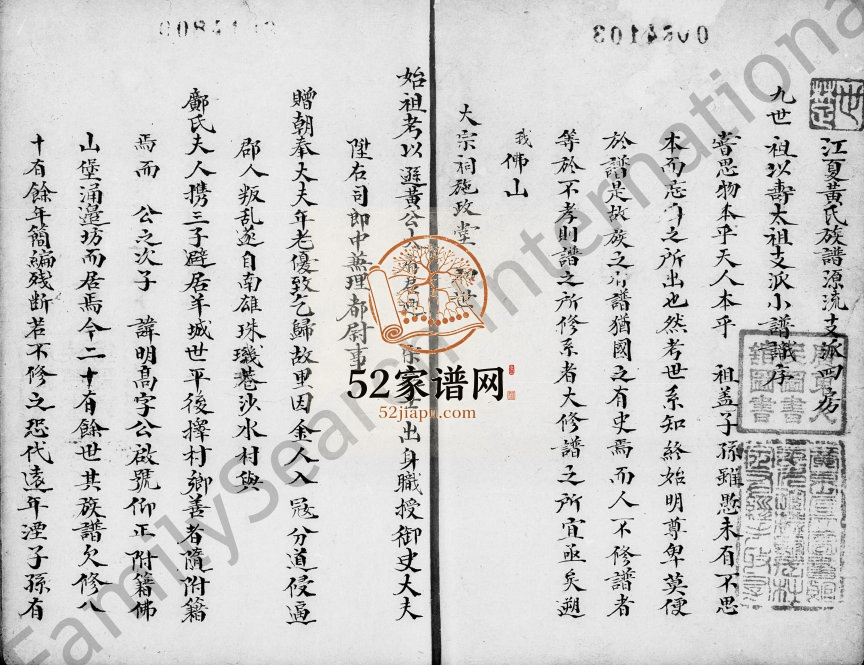 江夏黃氏族譜源流支派四房
九世祖以壽太祖支派小譜識序
嘗思物本乎天人本乎 祖盖子孫雖愚未有不思
本而忘之所出也然考世系知終始明尊卑莫便
於譜是故族之有譜猶國之有史焉而人不修譜者
等於不孝則譜之所修系者大修譜之所宜亟矣朔
我佛山
大宗祠施政堂世
始祖考以遜黃公出身職授御史大夫
陞右司郎中兼理都尉事
贈朝奉大夫年老優致乞歸故里因金人入冦分道侵逼
郡人叛乱遂自南雄珠璣巷沙水村與
鄺氏夫人携三子避居羊城世平後擇村鄉善者隨附籍
焉而 公之次子 諱明高字公啟號仰正附籍佛
山堡涌邉坊而居焉今二十有餘世其族譜欠修八
十有餘年簡編残断若不修之恐代遠年湮子孫有
0064103
FamilySearch International
52家谱网
52jiapu.com